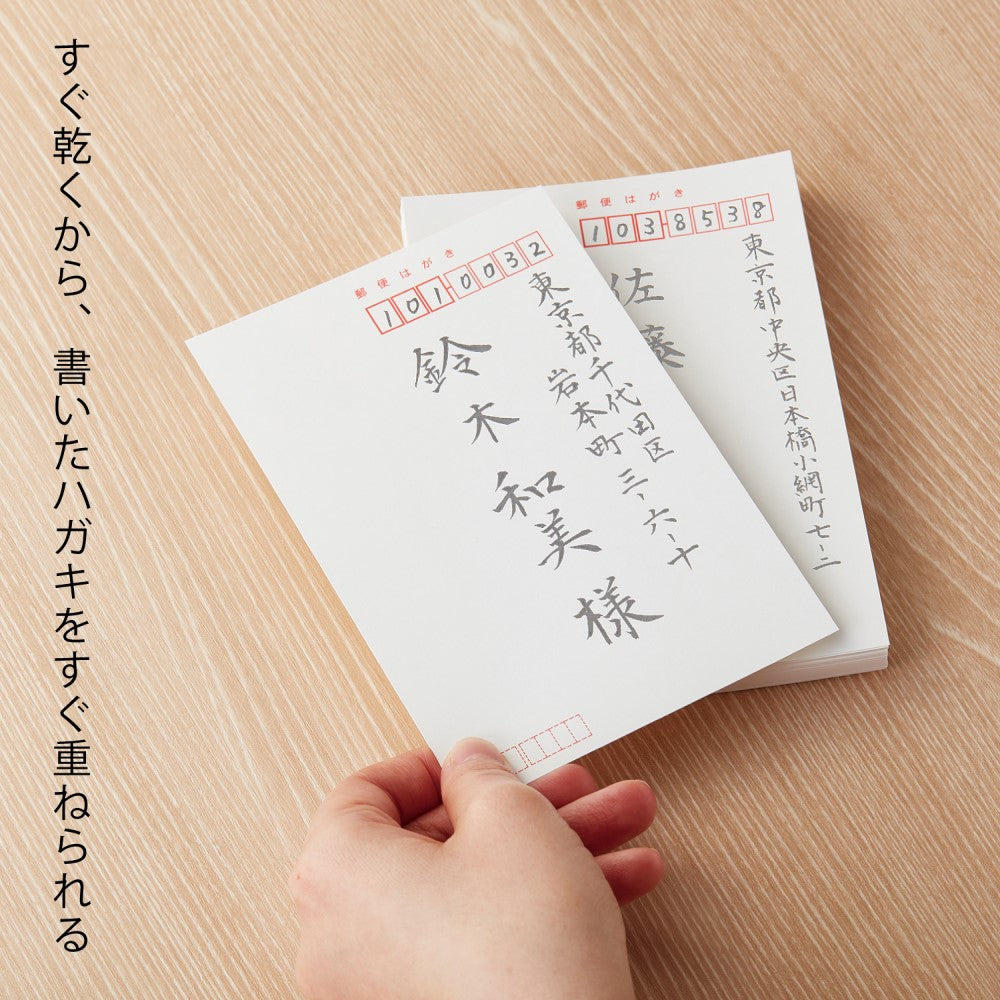 すぐ乾くから、書いたハガキをすぐ重ねられる
郵便はがき
101-0032
東京都千代田区
岩本町 三-六-十
鈴木和美様
郵便はがき
103-8538
東京都中央区日本橋小網町七-二
佐藤